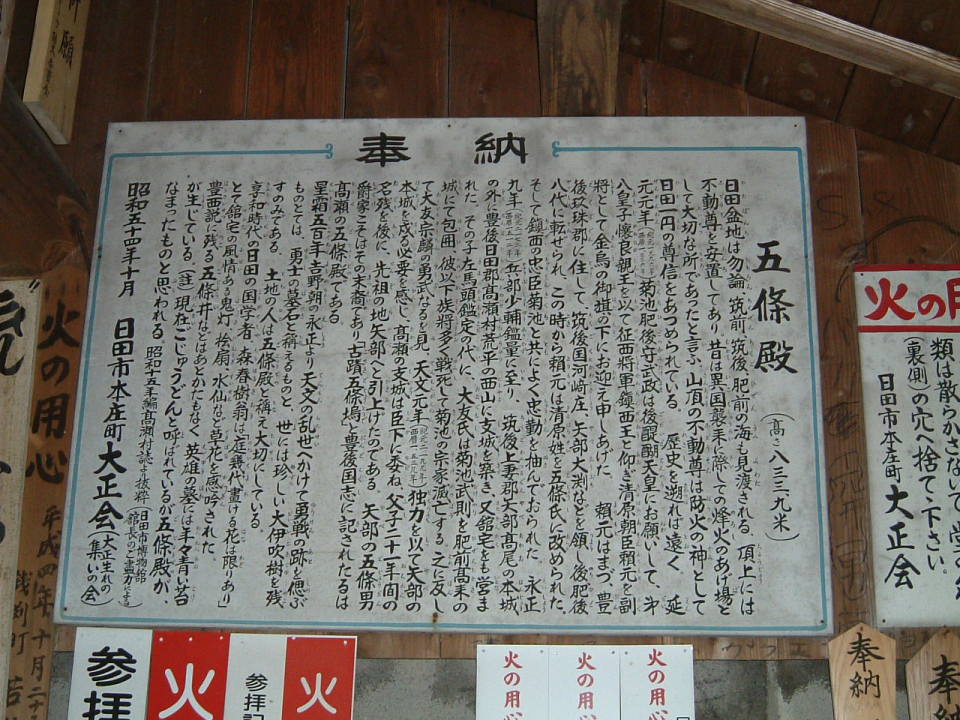 奉納
五條殿
(高さ八三三、九米)
日田盆地は勿論、筑前、筑後、肥前の海も見渡される。頂上には
不動尊を安置してあり、昔は異国襲来の際しての烽火のあげ場と
して大切な所であったと言ふ。山頂の不動尊は防火の神として
日田一円の尊信をあつめられている。歴史を遡れば遠く、延
元元年菊池肥後守武政は後醍醐天皇にお願いして、才
八皇子懐良親王を以て征西将軍鎮西王と仰ぎ清原朝臣頼元を副
将として金烏の御旗の下にお迎え申しあげた。頼元はまづ、豊
後玖珠郡に住して、筑後国河崎庄、矢部大渕などを領し、後肥後
八代に転ぜられ、この時から頼元は清原姓を五條氏に改められた。
そして鎮西の忠臣菊池と共によく忠勤を抽んておられた。永正
九年兵部少輔鑑量に至り、筑後上妻郡大部高尾の本城
の外に豊後日田郡高瀬村荒平の西山に支城を築き、又館宅をも営ま
れた。その子左馬頭鑑定の代に、大友氏は菊池武則を肥前高来の
城にて包囲、彼の下族将多く戦死して菊池の宗家滅亡する。之に反し
て大友宗麟の勇武なるを見て天文元年独力を以て大部の
本城を戍る必要を感じ、高瀬の支城は臣下に委ね、父子二十一年間の
名残を後に、先祖の地矢部へと引上げたのである。矢部の五條男
爵家こそはその末裔であり古蹟「五條塢」と豊後国志に記されたるは
高瀬の五條殿である。
星霜五百年、吉野朝の永正より天文の乱世へかけて勇戦の跡を偲ぶ
ものとては、勇士の墓石と称えるものと、世には珍しい大伊吹樹を残
すのみである。土地の人は五條殿と稱え大切にしている。
享和時代の日田の国学者、森春樹翁は「庭幾代書ける花は限りあり」
とて館宅の風情ある鬼灯、桧扇、水仙など草花を感吟された
豊西説に残る五條井などはあとかたもなく英雄の墓には年々青い苔
が生じている。(註)現在ごじゅうどんと呼ばれているが五條殿が、
なまったものと思われる。昭和十五年編高瀬村誌より抜粋
日田市博物館
館長のご盡力による
昭和五十四年十月
日田市本庄町大正会(大正生れの集いの会)
火の用心
平成四年十月二十
火の用
類は散らかさないで堂の
(裏側)の穴へ捨て下さい。
日田市本庄町 大正会
御願
参拝
火
参拝記
火
火の用心
火の用心
火の用心
奉納
奉納